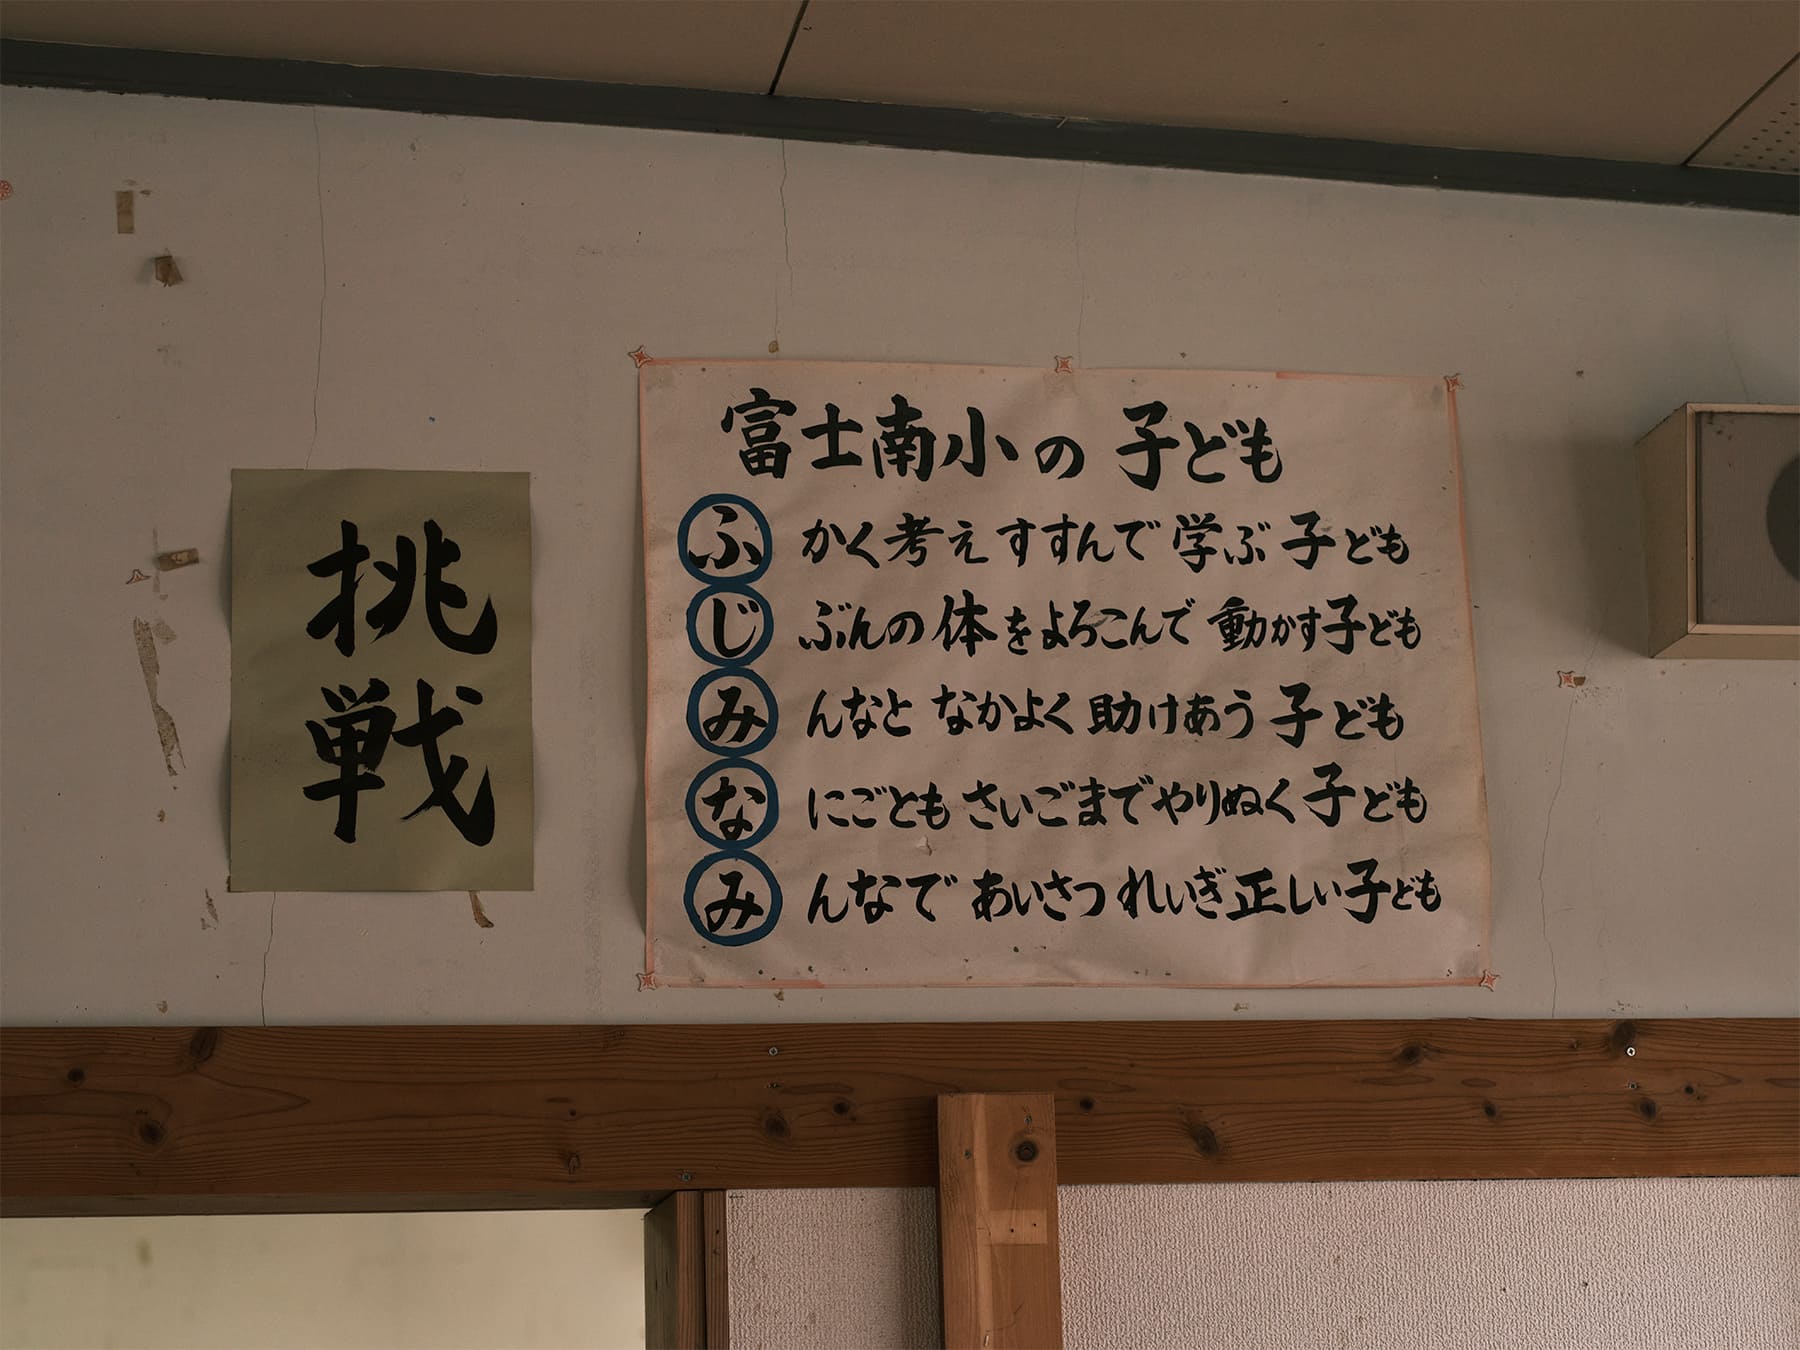 挑戦
富士南小の子ども
ふかく考えすすんで学ぶ子ども
じぶんの体をよろこんで動かす子ども
みんなとなかよく助けあう子ども
なにごともさいごまでやりぬく子ども
みんなであいさつれいぎ正しい子ども